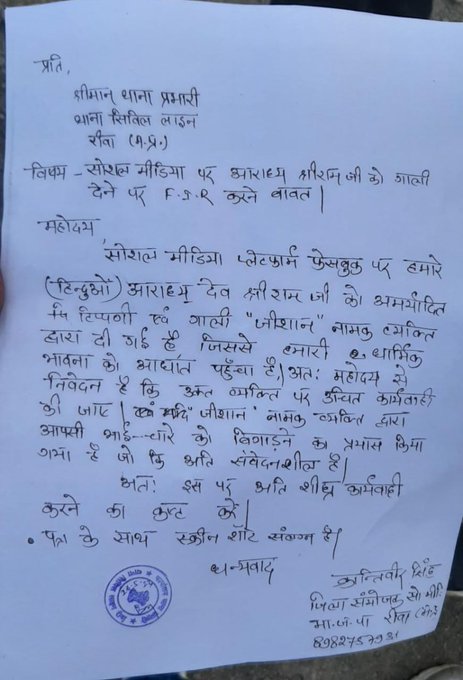 प्रति,
श्रीमान् थाना प्रभारी
थाना सिविल लाइन
रीवा (म.प्र.)
विषय - सोशल मीडिया पर आराध्य श्रीराम जी को गाली
देने पर F.I.R करने बावत |
महोदय,
सोशल मीडिया प्लेटफार्म फेसबुक पर हमारे
(हिन्दुओं) आराध्य देव श्री राम जी को अमर्यादित
टिप्पणी एवं गाली "जीशान" नामक व्यक्ति
द्वारा दी गई है जिससे हमारी धार्मिक
भावना को आघांत पहुँचा है| अतः महोदय से
निवेदन है कि उक्त व्यक्ति पर उचित कार्यवाही
की जाए | एवं यदि "जीशान" नामक व्यक्ति द्वारा
आपसी भाई-चारे को बिगाड़ने का प्रयास किया
गया है जो कि अति संवेदनशील है|
अतः इस पर अति शीघ्र कार्यवाही
करने का कष्ट करें|
• पत्र के साथ स्क्रीन शॉट संलग्न है|
धन्यवाद
क्रान्तिवीर सिंह
जिला संयोजक सो मी
भा.ज.पा रीवा (म.प्र.)